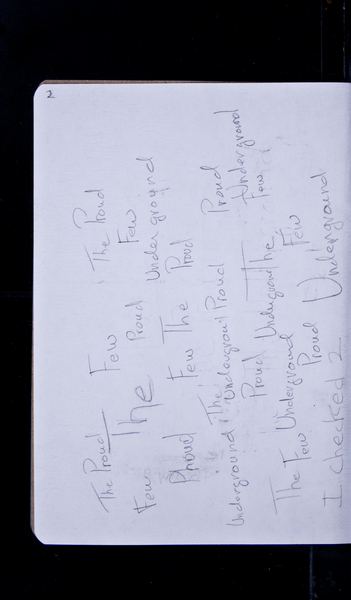 2
The Proud Few The Proud
The Few
Few Proud Underground
Proud Few The Proud
Underground The Underground Proud Proud
Underground
Proud Underground The Few
The Few Underground Proud Few
I checked 2 Underground